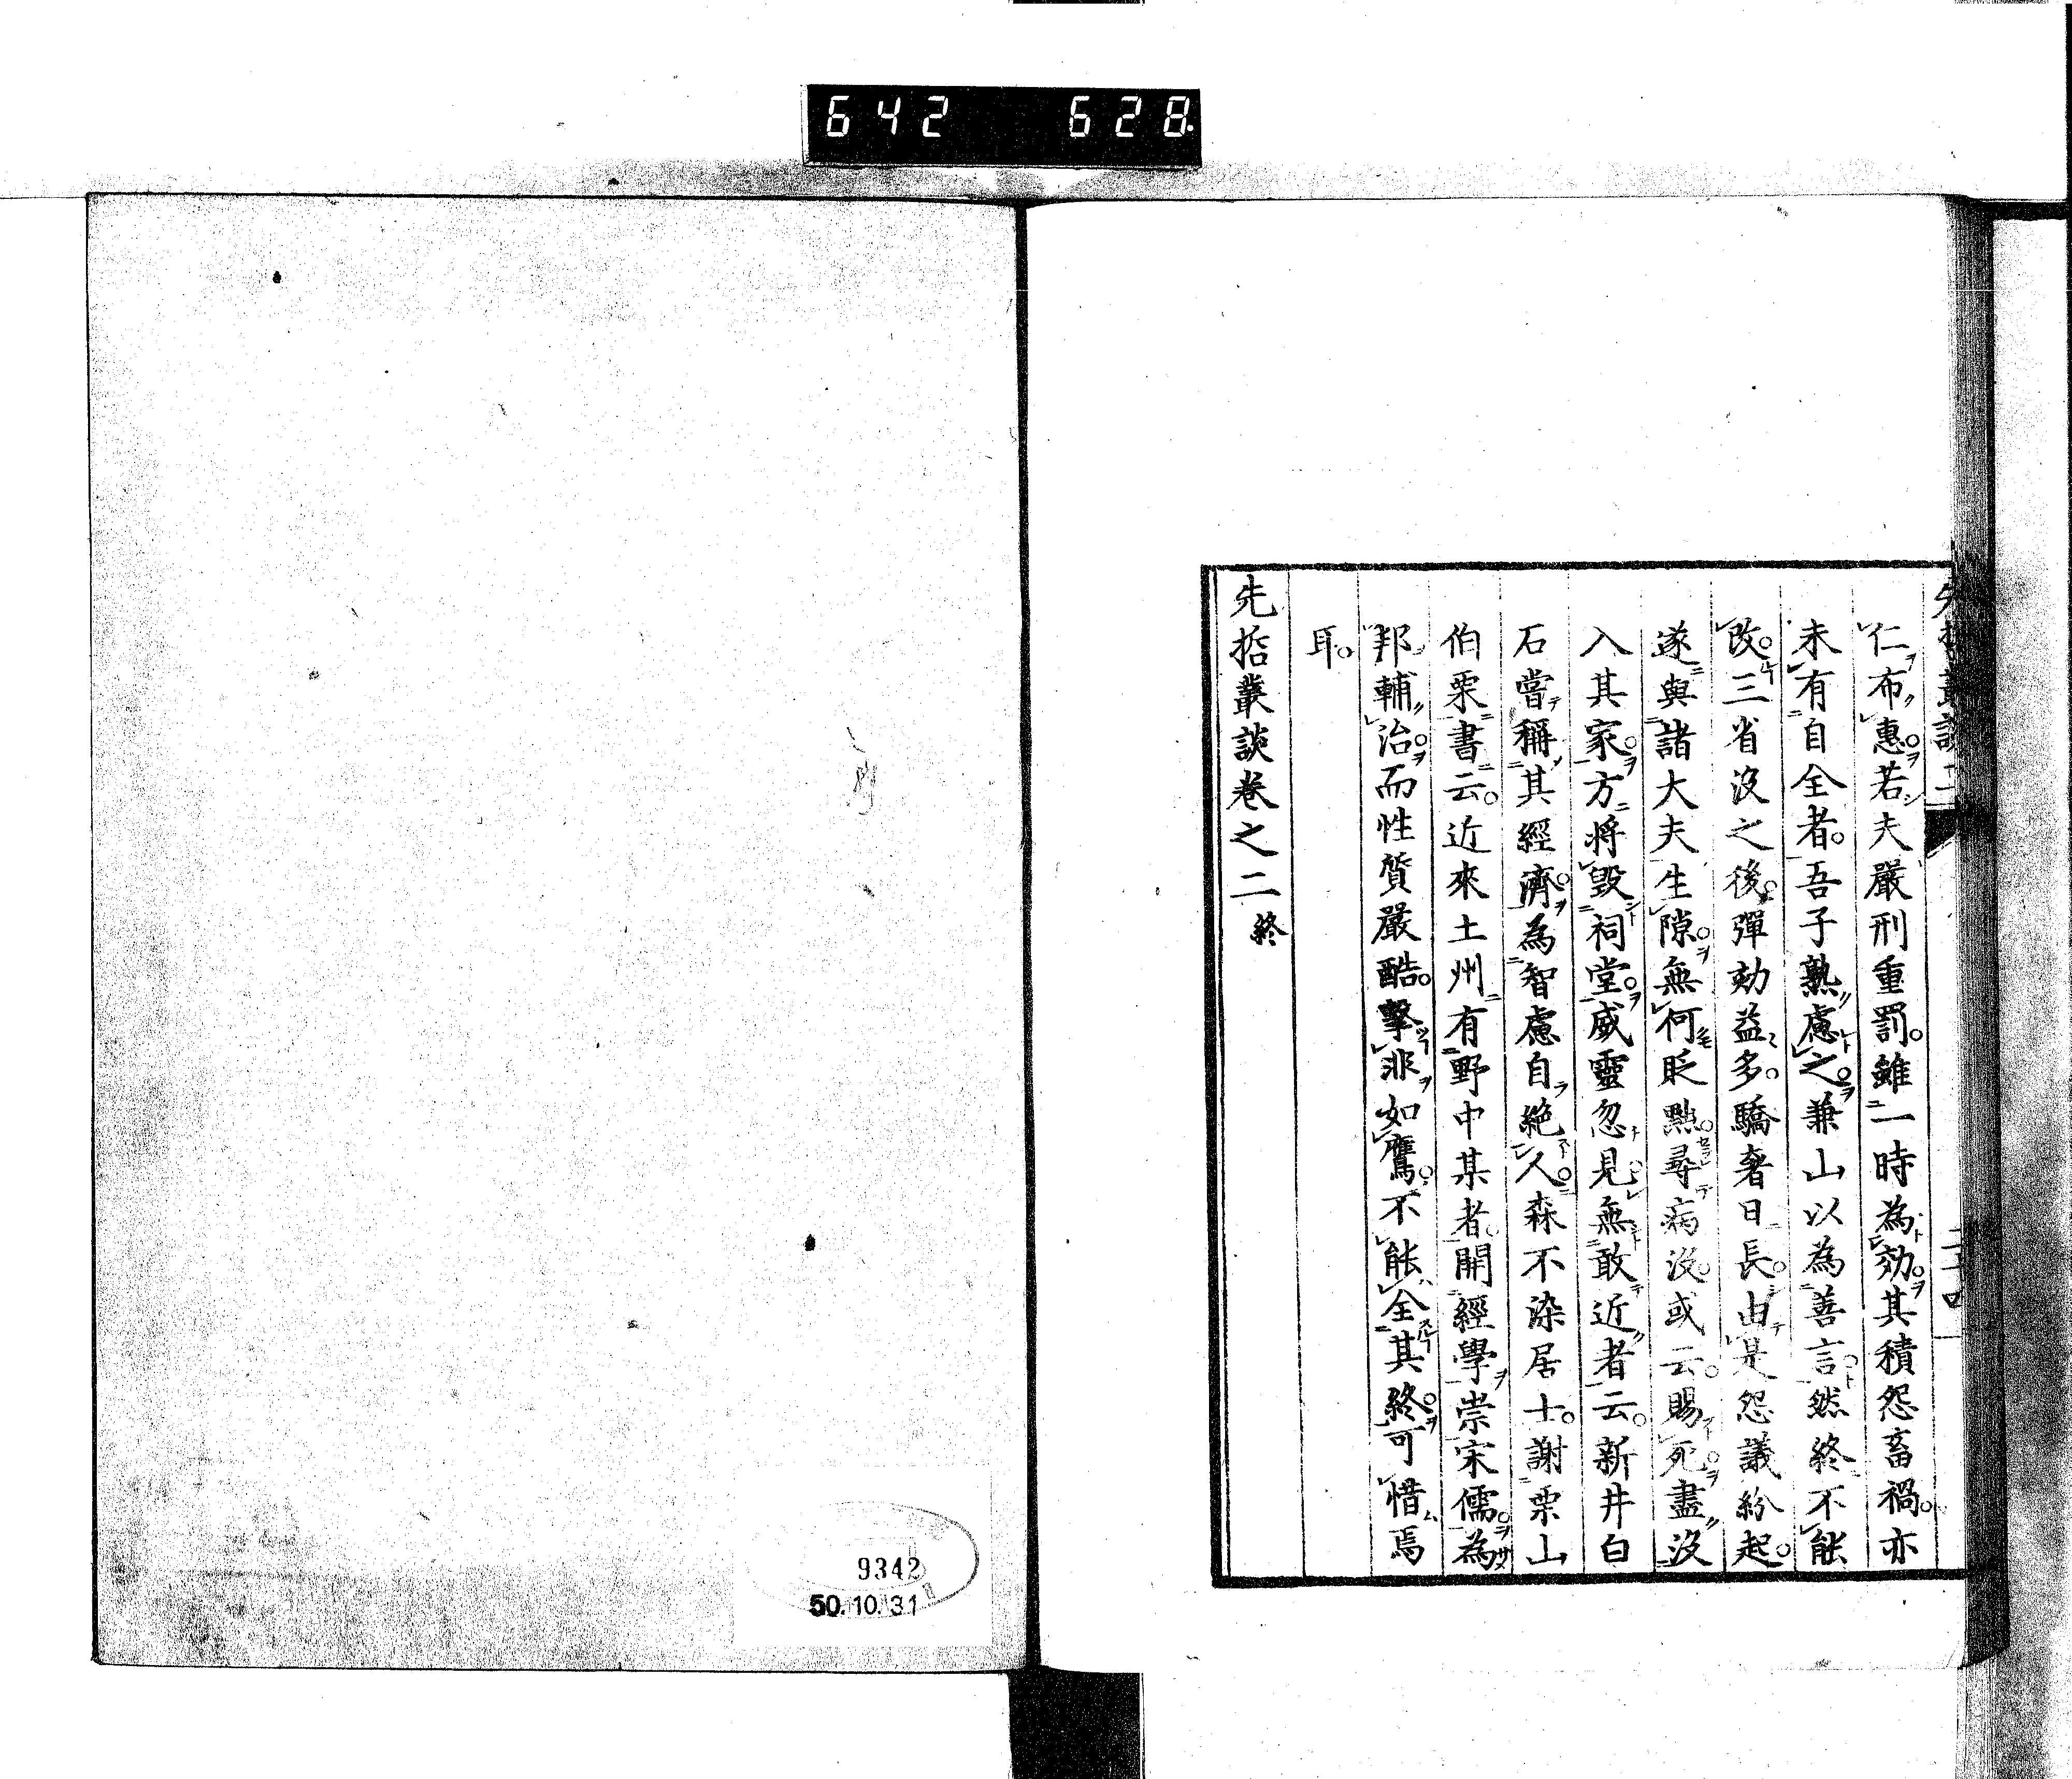 642 628.
仁布惠若夫嚴刑重罰。雖一時為効。其積怨畜禍。亦
未有自全者。吾子熟慮之。兼山以為善言。然終不能
改。三省没之後。彈劾益多。驕奢日長。由是怨議紛起。
遂與諸大夫生隙。無何貶黜。尋病没。或云。賜死。盡没
入其家。方將毀祠堂。威靈忽見。無敢近者云。新井白
石嘗稱其經濟。為智慮自絶人。森不染居士。謝栗山
伯栗書云。近來土州有野中某者。開經學崇宋儒。為
邦輔治。而性質嚴酷。擊非如鷹。不能全其終。可惜焉
耳。
先哲叢談卷之二終
9342
50.10.31